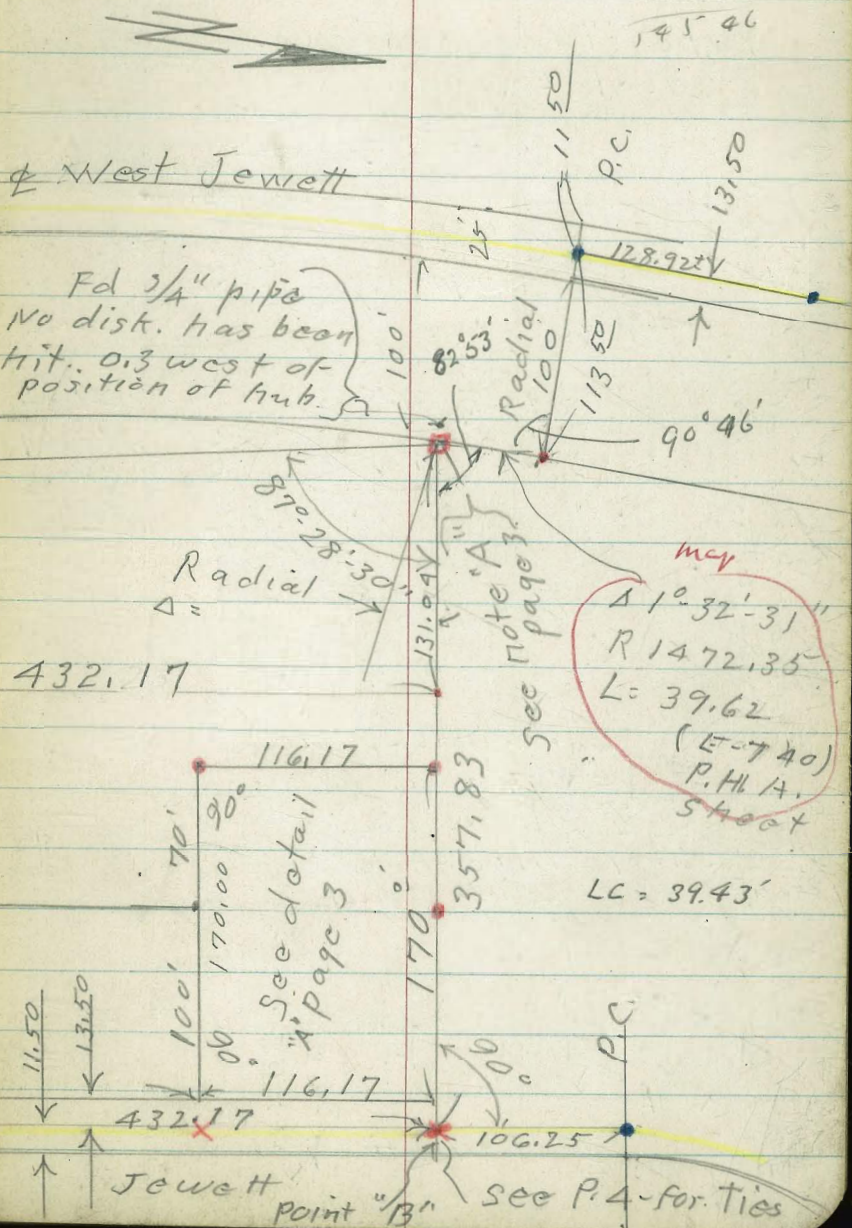 145.46
11 50
P.C.
13.50
℄ West Jewett
25'
128.92±
Fd 3/4" pipe
No disk. has been
hit.. 0.3 west of
position of hub.
100'
82°53'
Radial
100
113 50
90° 46'
87°-28'-30"
Radial
Δ =
131.04
See note "A"
page 3
map
Δ 1°-32'-31"
R 1472.35
L= 39.62
(E-740)
P.H.A.
Sheet
432.17
116.17
357.83
70'
90°
170.00
See detail
"A" page 3
170.0'
LC = 39.43'
100'
90°
11.50
13.50
116.17
90°
P.C.
432.17
106.25
Jewett
Point "B"
See P.4-for Ties